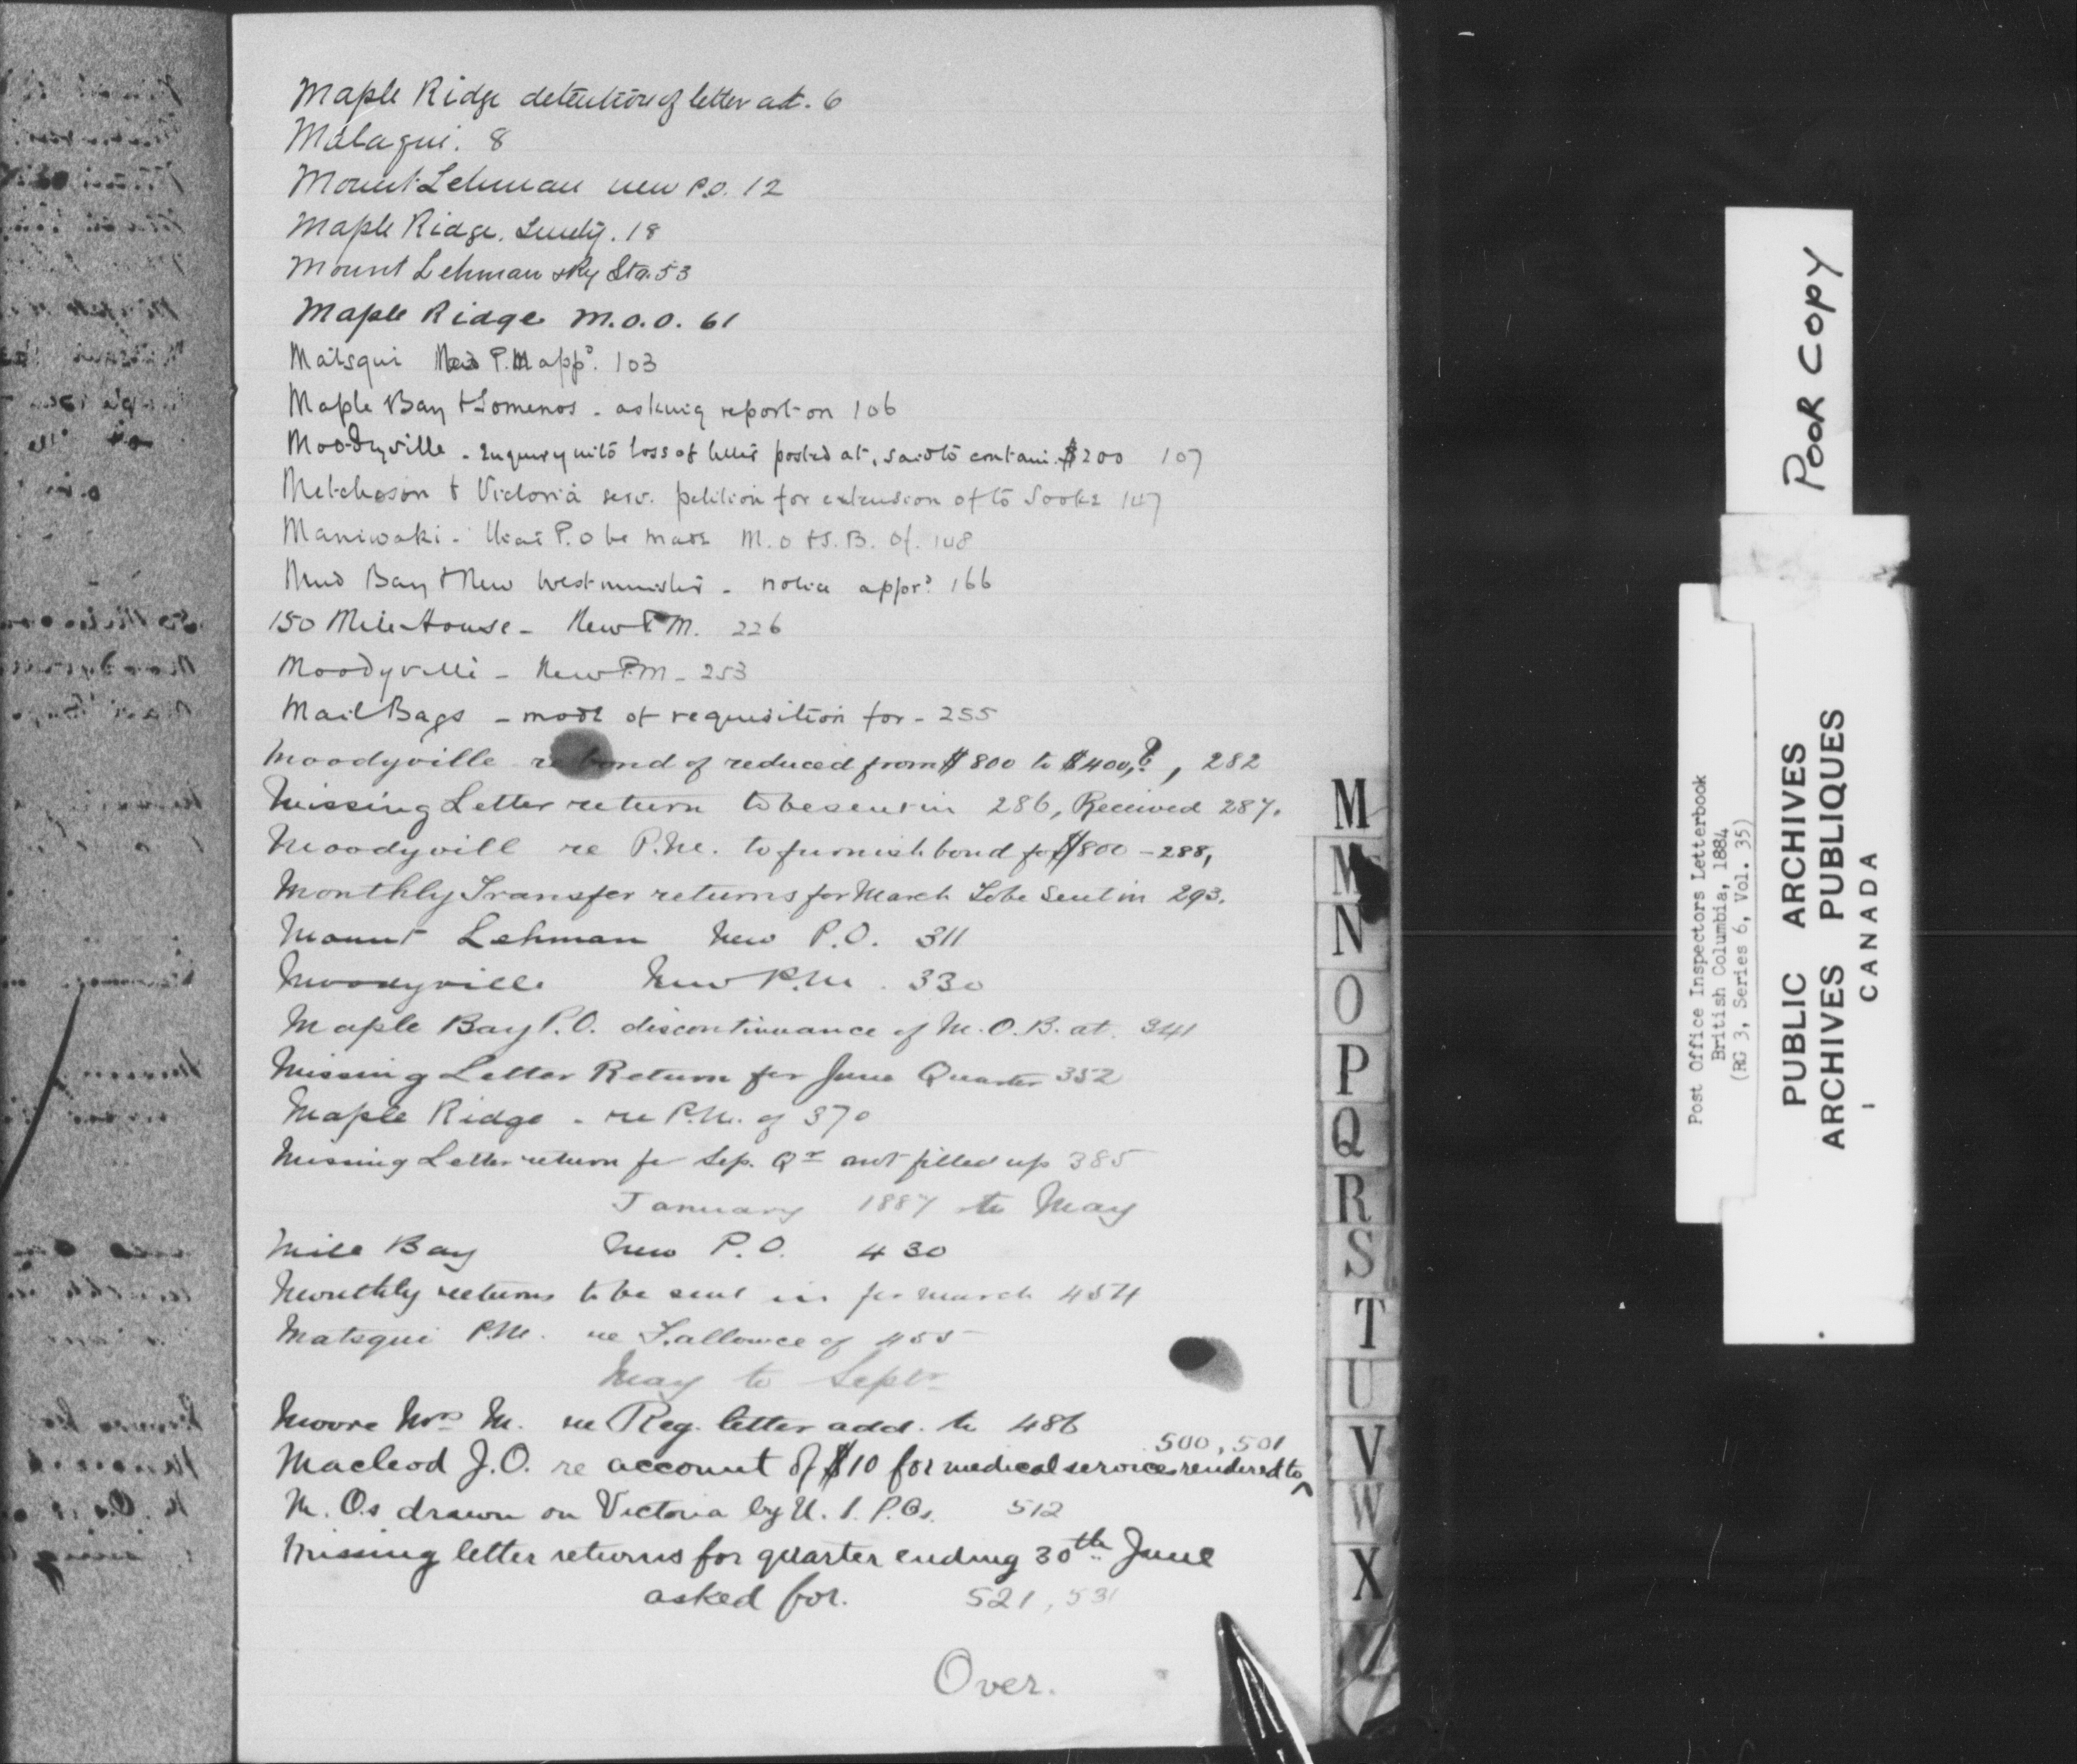 Maple Ridge detention of letter at. 6
Matsqui. 8
Mount Lehman new P.O. 12
Maple Ridge. 18
Mount Lehman Ry Sta. 53
Maple Ridge M.O.O. 61
Matsqui New P.M appd. 103
Maple Bay & Somenos - asking report on 106
Moodyville - Enquiry into loss of letter posted at, said to contain $200 107
Metchosin & Victoria serv. petition for extension of to Sooke 147
Maniwaki - that P.O be made M.O & S.B. Of. 148
Mud Bay & New Westminster - notice appor? 166
150 Mile House - New P.M. 226
Moodyville - New P.M - 253
Mail Bags - mode of requisition for - 255
Moodyville re bond of reduced from $800 to $400,?, 282
Missing Letter return to be sent in 286, Received 287.
Moodyvill re P.M. to furnish bond for $800 - 288,
Monthly Transfer returns for March To be Sent in 293.
Mount Lehman New P.O. 311
Moodyville New P.M. 330
Maple Bay P.O. discontinuance of M.O.B. at. 341
Missing Letter Return for June Quarter 352
Maple Ridge - re P.M. of 370
Missing Letter return for Sep. Qr not filled up 385
January 1887 to May
Mill Bay New P.O. 430
Monthly returns to be sent in for March 454
Matsqui P.M. re F. allowce of 455
May to Septr
Moore Mrs M. re Reg. letter add. to 486
500, 501
Macleod J.O. re account of $10 for medical services rendered to ^
M. O.s drawn on Victoria by U. S. P.Os. 512
Missing letter returns for quarter ending 30th June
asked for. 521, 531
Over.
M
M
N
O
P
Q
R
S
T
U
V
W
X
POOR COPY
Post Office Inspectors Letterbook
British Columbia, 1884
(RG 3, Series 6, Vol. 35)
PUBLIC ARCHIVES
ARCHIVES PUBLIQUES
CANADA